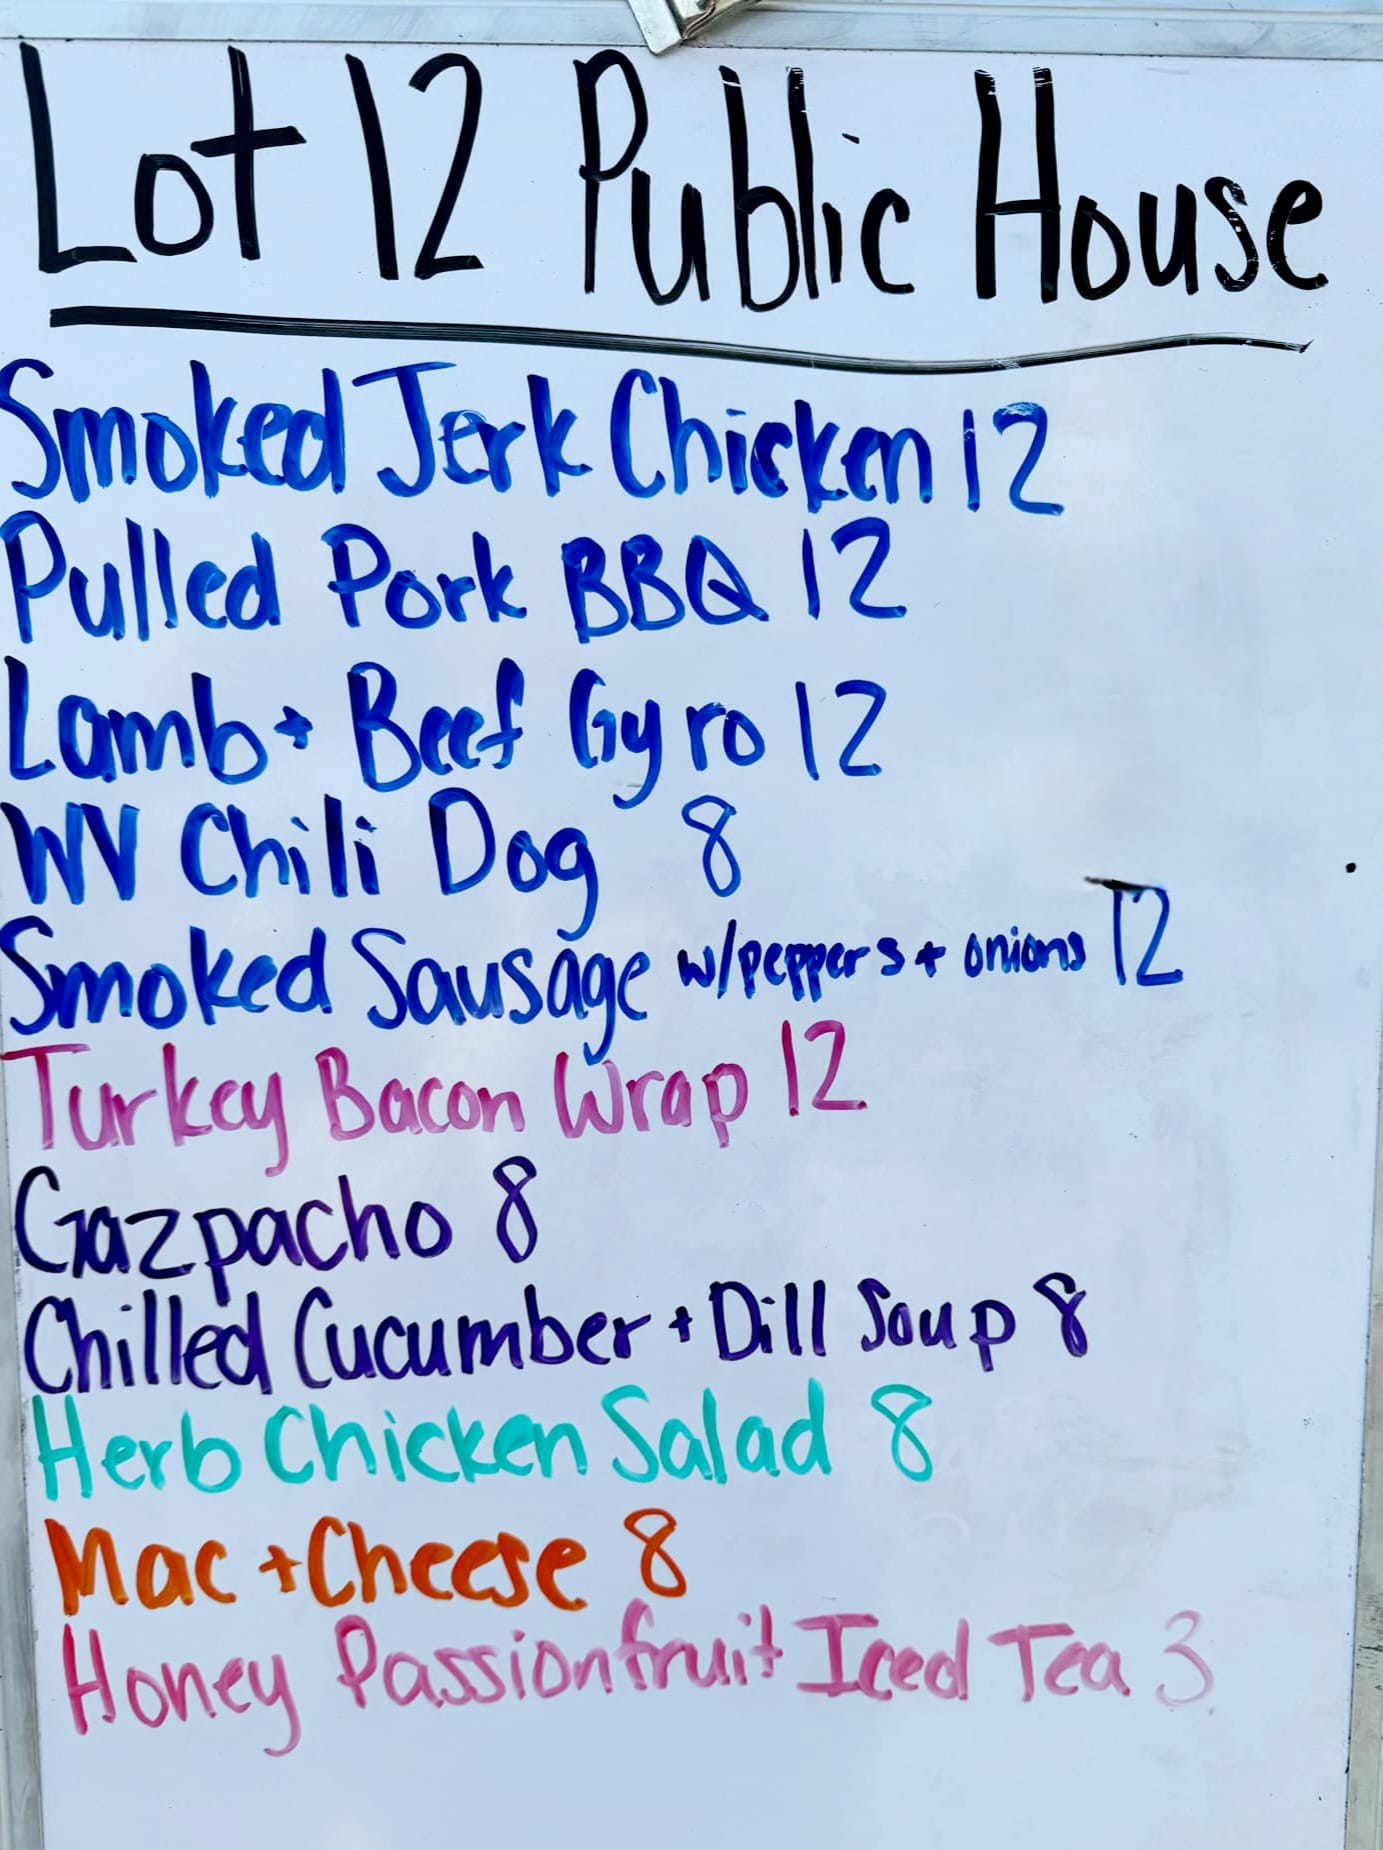 Lot 12 Public House
Smoked Jerk Chicken 12
Pulled Pork BBQ 12
Lamb + Beef Gyro 12
WV Chili Dog 8
Smoked Sausage w/peppers + onions 12
Turkey Bacon Wrap 12
Gazpacho 8
Chilled Cucumber + Dill Soup 8
Herb Chicken Salad 8
Mac + Cheese 8
Honey Passionfruit Iced Tea 3